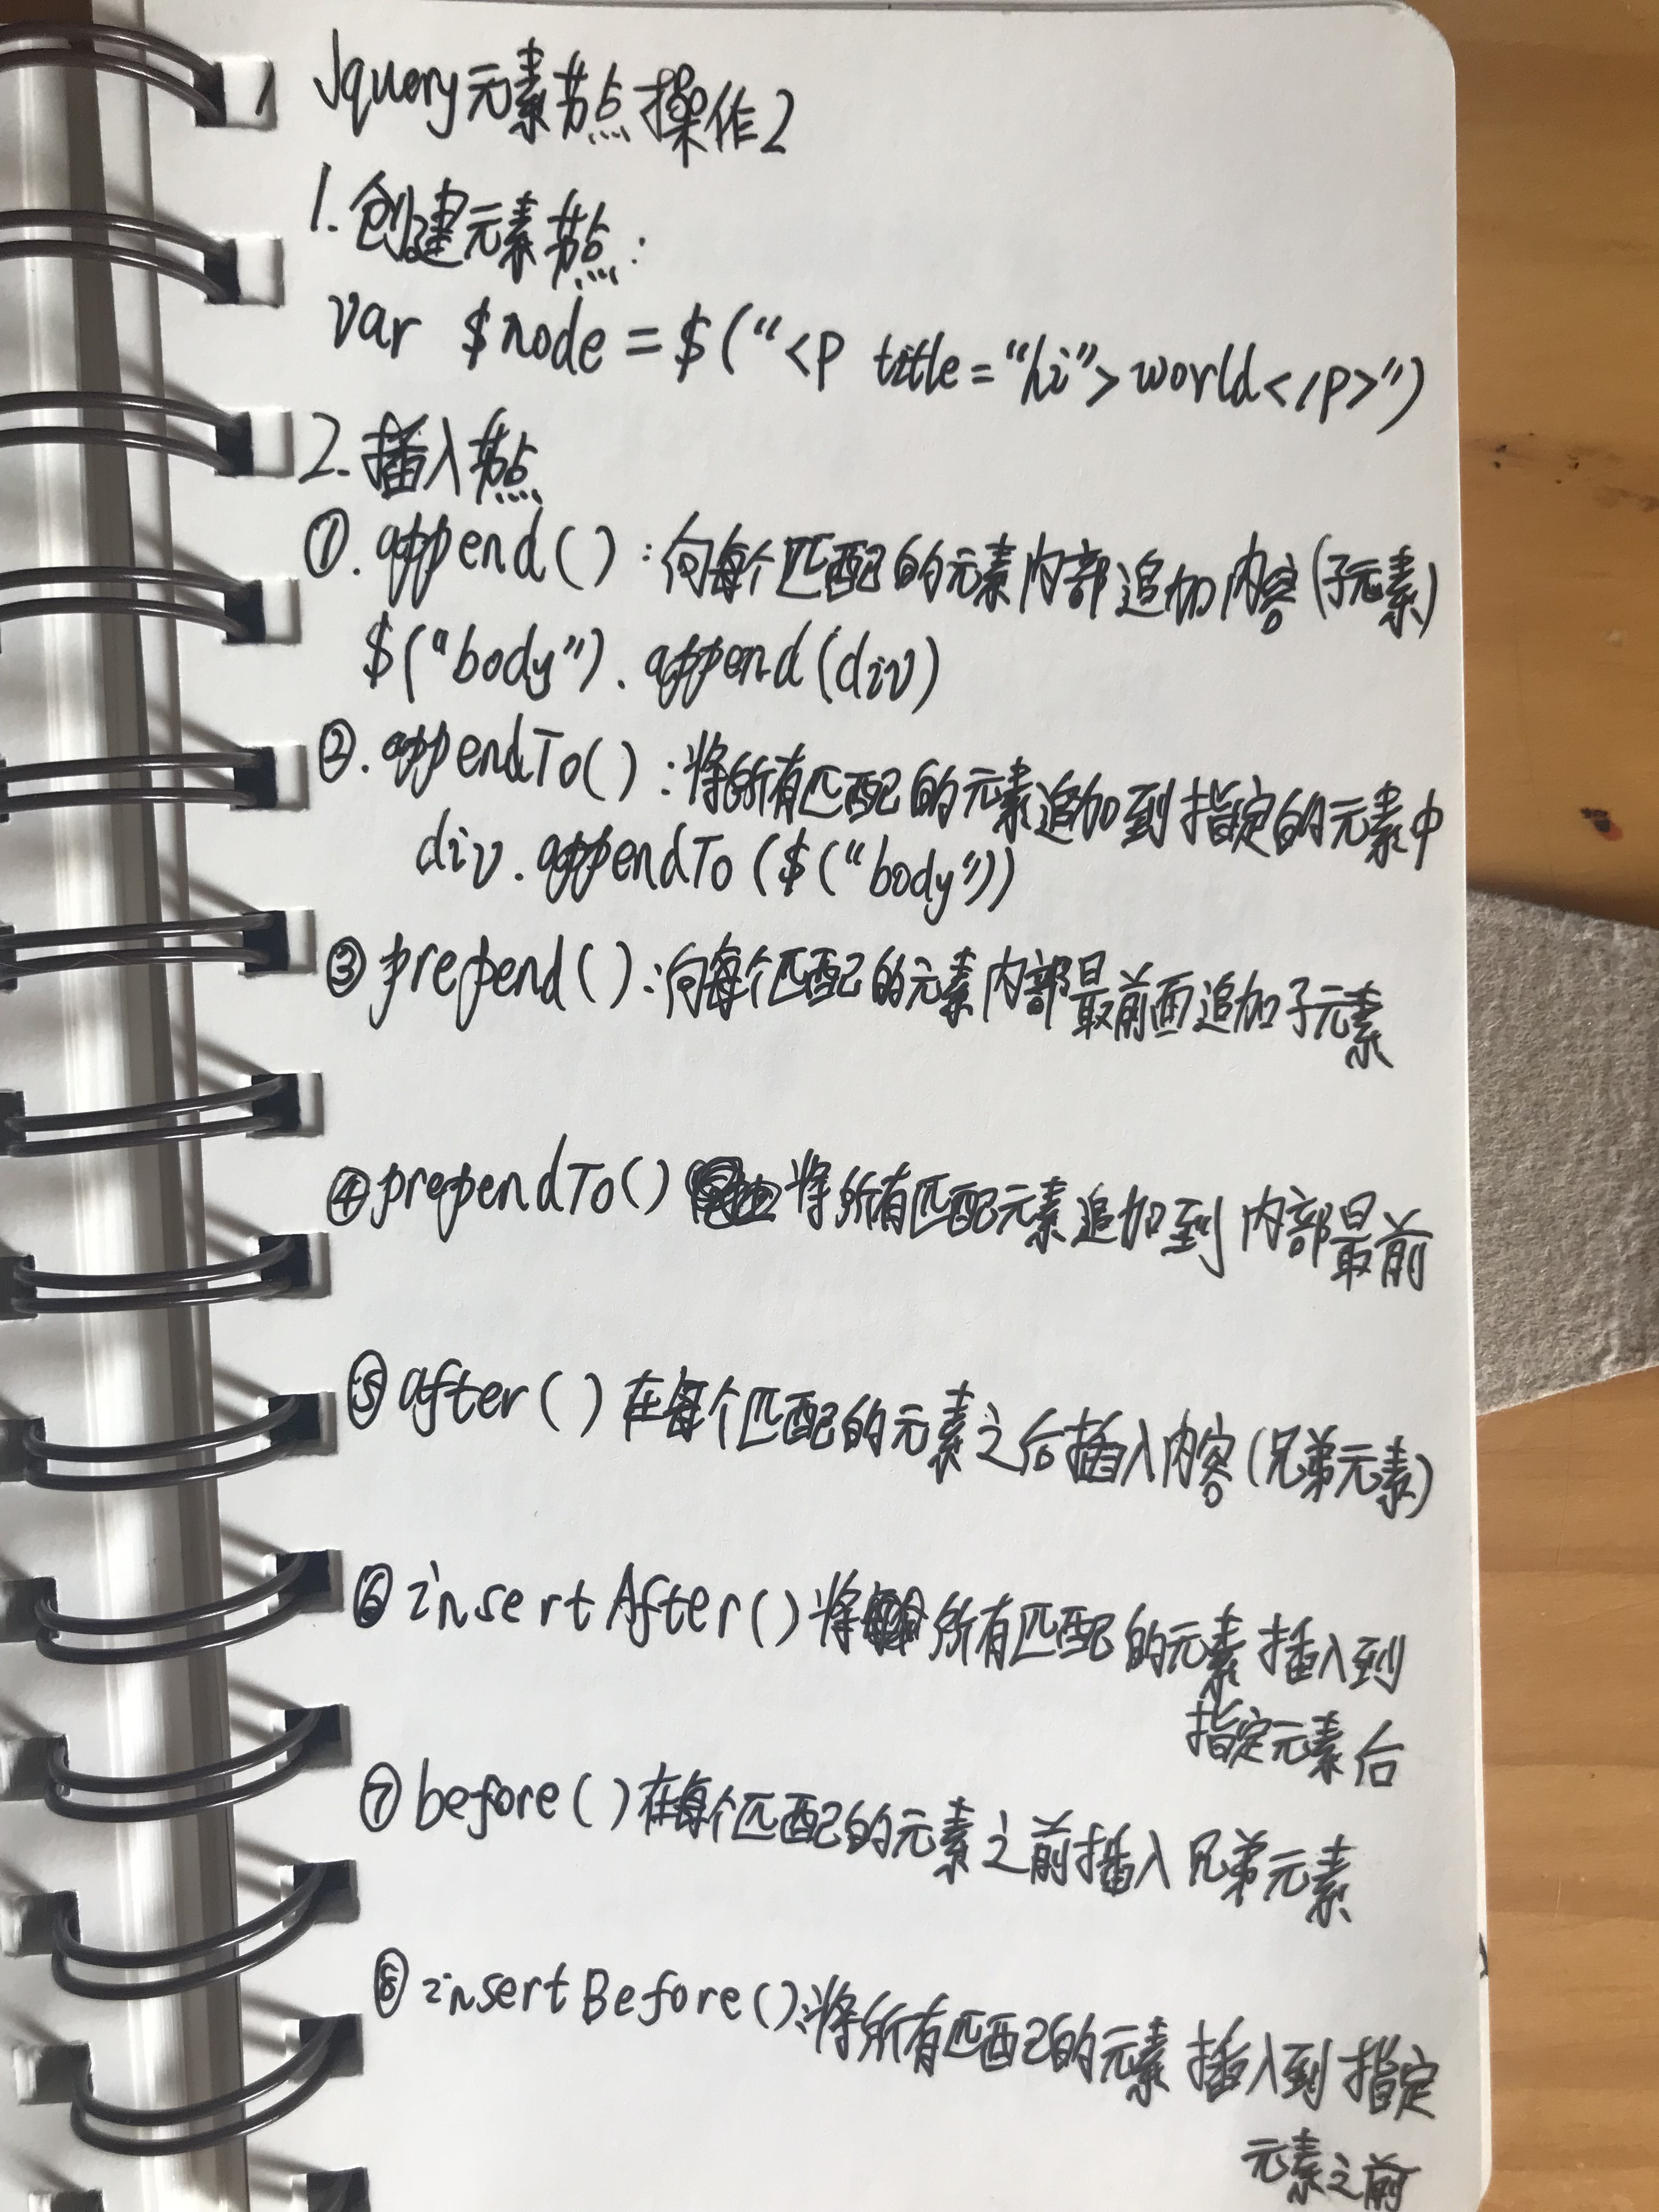 Jquery元素节点操作2
1.创建元素节点:
var $node=$(“<p title=“hi”>world</p>”)
2.插入节点
①.append():向每个匹配的元素内部追加内容(子元素)
$(“body”).append(div)
②.appendTo():将所有匹配的元素追加到指定的元素中
div.appendTo($(“body”))
③prepend():向每个匹配的元素内部最前面追加子元素
④prependTo()将所有匹配元素追加到内部最前
⑤after()在每个匹配的元素之后插入内容(兄弟元素)
⑥insertAfter()将所有匹配的元素插入到
指定元素后
⑦before()在每个匹配的元素之前插入兄弟元素
⑧insertBefore():将所有匹配的元素插入到指定
元素之前